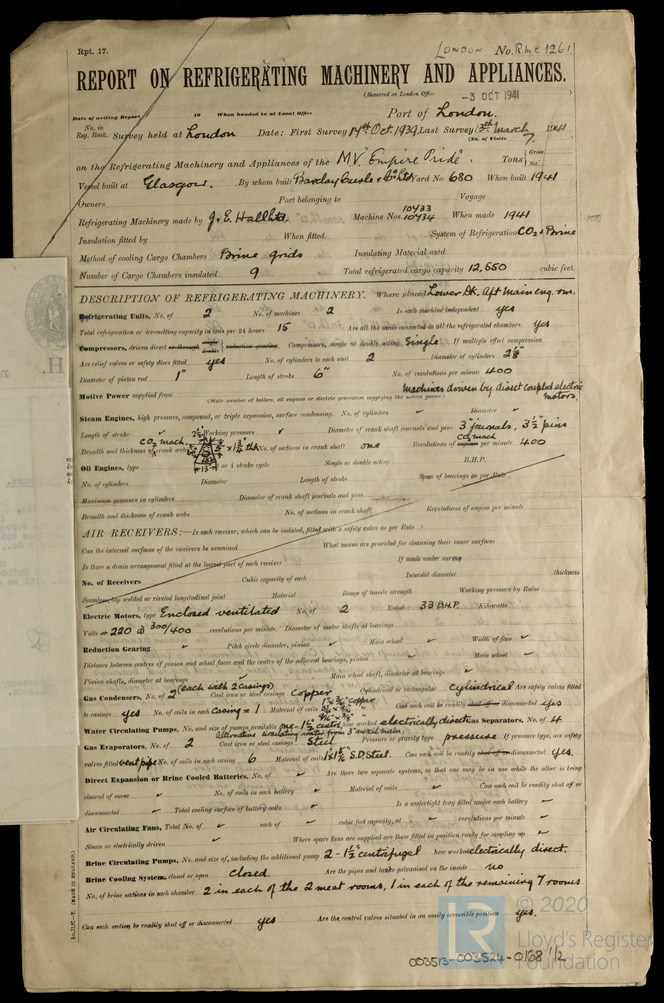 Rpt. 17.
LONDON No. R.M.C 1261
REPORT ON REFRIGERATING MACHINERY AND APPLIANCES.
(Received at London Office -3 OCT 1941 )
Date of writing Report 19 When handed in at Local Office Port of London.
No. in Reg. Book. Survey held at London Date: First Survey 14th Oct. 1939 Last Survey 13th March 1941
(No. of Visits 7.
on the Refrigerating Machinery and Appliances of the MV. "Empire Pride". Tons { Gross Net
Vessel built at Glasgow. By whom built Barclay Curle & Co Ltd Yard No. 680 When built 1941
Owners Port belonging to Voyage
Refrigerating Machinery made by J. & E. Hall Ltd. Machine Nos. 10433 10434 When made 1941
Insulation fitted by When fitted System of Refrigeration CO2 & Brine
Method of cooling Cargo Chambers Brine grids Insulating Material used
Number of Cargo Chambers insulated 9 Total refrigerated cargo capacity 12,550 cubic feet.
DESCRIPTION OF REFRIGERATING MACHINERY. Where placed Lower Dk. Aft Main eng. rm.
Refrigerating Units, No. of 2 No. of machines 2 Is each machine independent yes
Total refrigeration or ice-melting capacity in tons per 24 hours 15 Are all the units connected to all the refrigerated chambers yes
Compressors, driven direct or through single double reduction gearing. Compressors, single or double acting Single If multiple effect compression
Are relief valves or safety discs fitted yes No. of cylinders to each unit 2 Diameter of cylinders 2 1/8"
Diameter of piston rod 1" Length of stroke 6" No. of revolutions per minute 400
Motive Power supplied from Machines driven by direct coupled electric motors.
(State number of boilers, oil engines or electric generators supplying the motive power.)
Steam Engines, high pressure, compound, or triple expansion, surface condensing. No. of cylinders ✓ Diameter ✓
Length of stroke ✓ Working pressure ✓ Diameter of crank shaft journals and pins 3" journals, 3 1/2" pins
Breadth and thickness of crank webs CO2 mach. No. of sections in crank shaft one Revolutions of CO2 mach per minute 400
Oil Engines, type 2 or 4 stroke cycle Single or double acting B.H.P.
No. of cylinders Diameter Length of stroke Span of bearings as per Rule
Maximum pressure in cylinders Diameter of crank shaft journals and pins
Breadth and thickness of crank webs No. of sections in crank shaft Revolutions of engine per minute
AIR RECEIVERS:—Is each receiver, which can be isolated, fitted with a safety valve as per Rule
Can the internal surfaces of the receivers be examined What means are provided for cleansing their inner surfaces
Is there a drain arrangement fitted at the lowest part of each receiver If made under survey
No. of Receivers Cubic capacity of each Internal diameter thickness
Seamless, lap welded or riveted longitudinal joint Material Range of tensile strength Working pressure by Rules
Electric Motors, type Enclosed ventilated No. of 2 Rated 33 B.H.P. Kilowatts
Volts 220 @ 300/400 revolutions per minute. Diameter of motor shafts at bearings
Reduction Gearing ✓ Pitch circle diameter, pinion ✓ Main wheel ✓ Width of face ✓
Distance between centres of pinion and wheel faces and the centre of the adjacent bearings, pinion ✓ Main wheel ✓
Pinion shafts, diameter at bearings ✓ Main wheel shaft, diameter at bearings ✓
Gas Condensers, No. of 2 (each with 2 casings) Cast iron or steel casings copper Cylindrical or rectangular cylindrical Are safety valves fitted
to casings yes No. of coils in each casing 1 Material of coils copper Can each coil be readily shut off or disconnected yes
Water Circulating Pumps, No. and size of pumps available one- how worked electrically direct Gas Separators, No. of 4
Gas Evaporators, No. of 2 Cast iron or steel casings Steel Pressure or gravity type pressure If pressure type, are safety
valves fitted vent pipe No. of coils in each casing 6 Material of coils S.D. Steel. Can each coil be readily shut off or disconnected yes.
Direct Expansion or Brine Cooled Batteries, No. of ✓ Are there two separate systems, so that one may be in use while the other is being
cleared of snow ✓ No. of coils in each battery ✓ Material of coils ✓ Can each coil be readily shut off or
disconnected ✓ Total cooling surface of battery coils ✓ Is a watertight tray fitted under each battery ✓
Air Circulating Fans, Total No. of ✓ each of ✓ cubic feet capacity, at ✓ revolutions per minute ✓
Steam or electrically driven ✓ Where spare fans are supplied are these fitted in position ready for coupling up ✓
Brine Circulating Pumps, No. and size of, including the additional pump 2 - 1 1/2" centrifugal how worked electrically direct.
Brine Cooling System, closed or open Closed. Are the pipes and tanks galvanised on the inside no
No. of brine sections in each chamber 2 in each of the 2 meat rooms, 1 in each of the remaining 7 rooms
Can each section be readily shut off or disconnected yes Are the control valves situated in an easily accessible position yes.
(MADE IN ENGLAND.)
© 2020
LR
Lloyd's Register
Foundation
003513-003524-0168 1/2